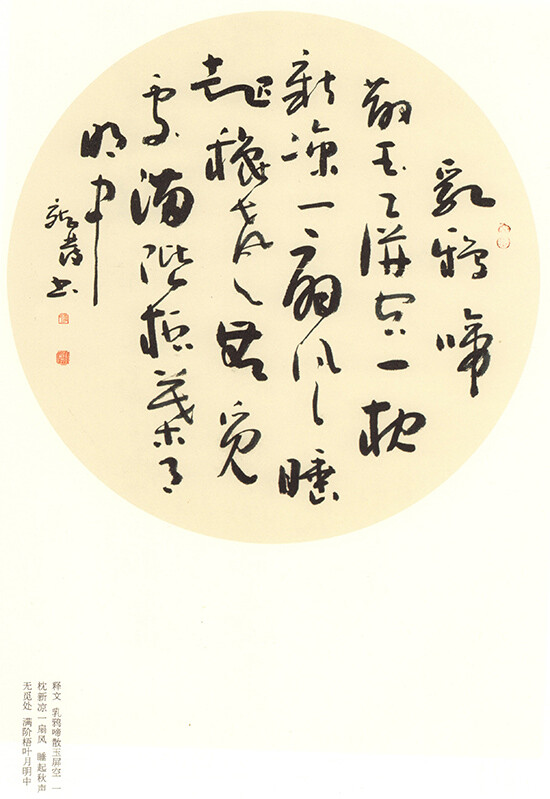 乳鴉啼
散玉屏空一枕
新涼一扇風睡
起秋聲無覓
處滿階梧葉月
明中
书
释文 乳鸦啼散玉屏空 一
枕新凉一扇风 睡起秋声
无觅处 满阶梧叶月明中